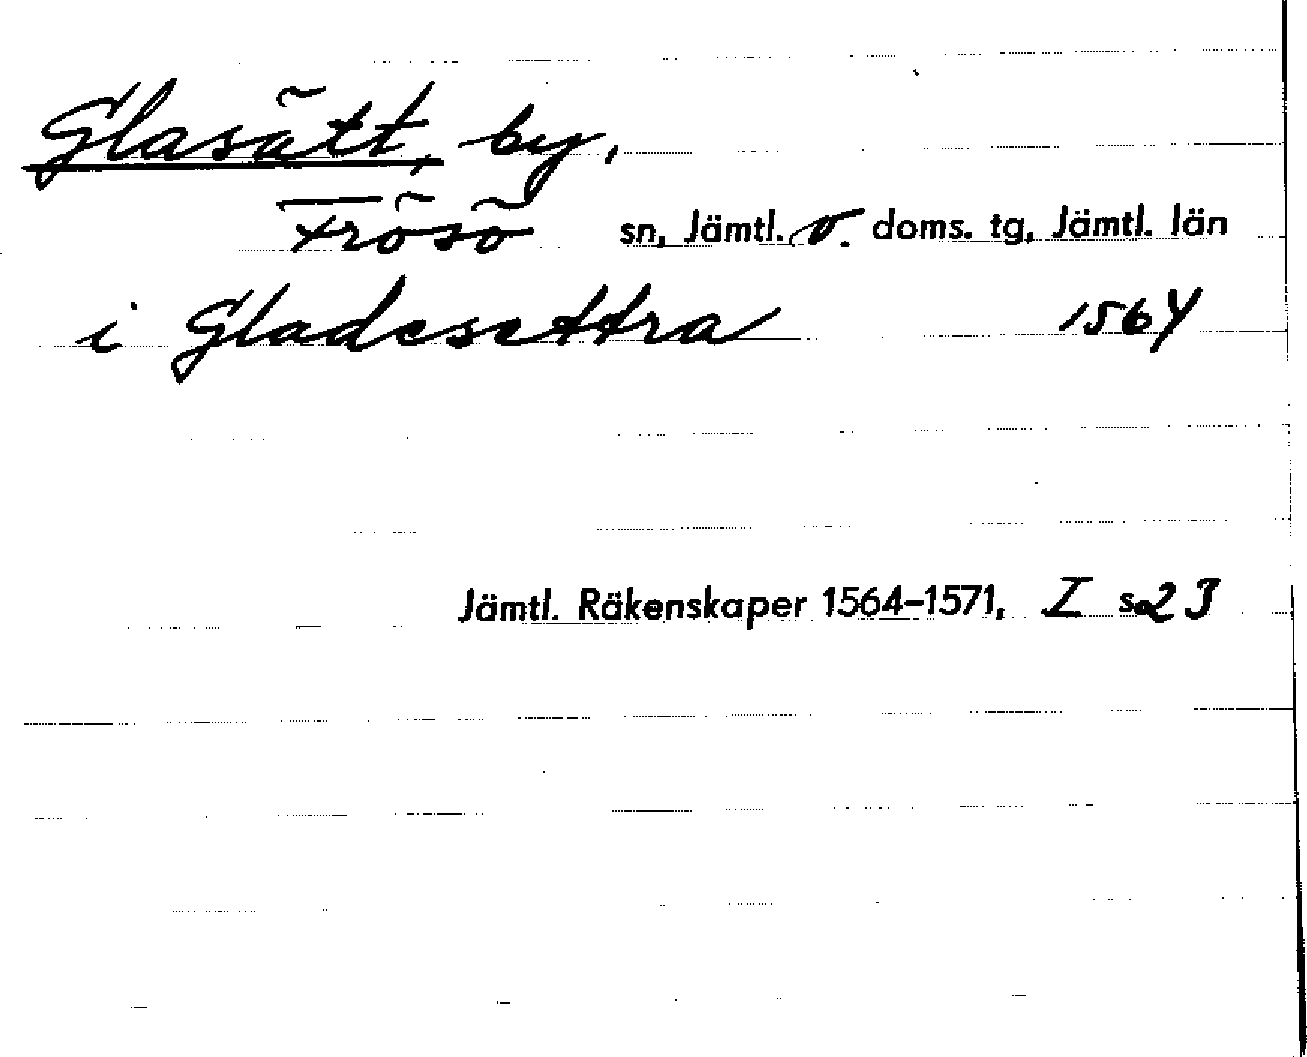 Glasätt, by,
Frösö sn, Jämtl. v. doms. tg, Jämtl. län
i Gladesettra 1564
Jämtl. Räkenskaper 1564-1571, I s. 23